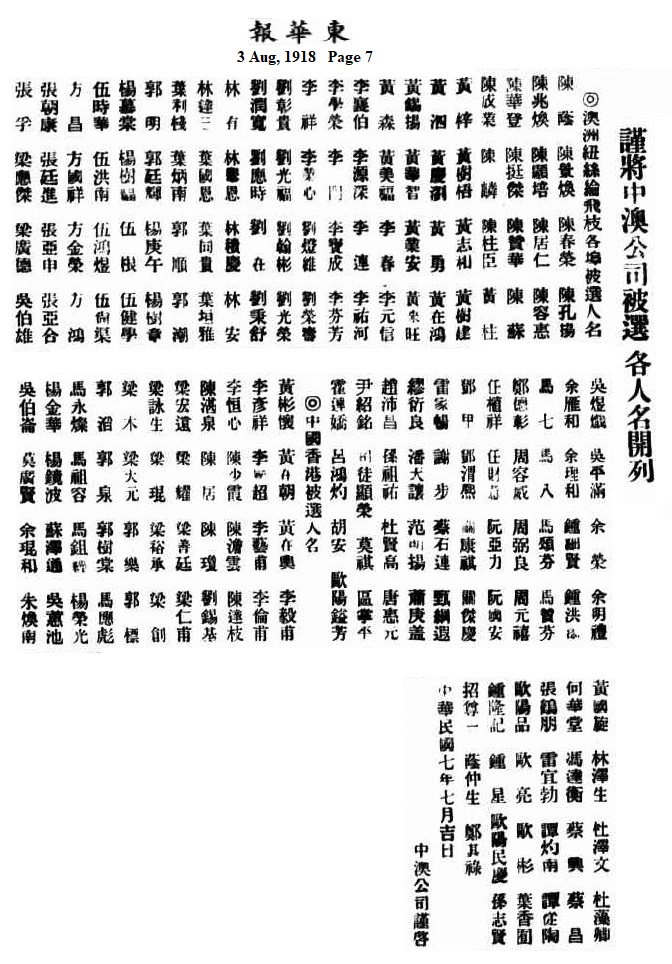 東華報
3 Aug, 1918 Page 7
謹將中澳公司被選各人名開列
◎澳洲紐絲綸飛枝各埠被選人名
陳蔭 陳煥 陳春榮 陳孔揚
陳兆煥 陳顯培 陳居仁 陳容惠
陳華登 陳挺傑 陳贊華 陳蘇
陳成業 陳麟 陳桂臣 黃柱
黃梓 黃樹梧 黃志相 黃樹建
黃泗 黃慶瀏 黃勇 黃在鴻
黃錫揚 黃華智 黃業安 黃旺
黃森 黃美福 李春 李元信
李襄伯 李源深 李連 李祐河
李學榮 李門 李寶成 李芬芳
李祥 李業心 劉燈維 劉榮
劉彰貴 劉光福 劉翰彬 劉光榮
劉潤寬 劉應時 劉在 劉秉舒
林有 林恩 林積慶 林安
林達三 葉國恩 葉同貴 葉垣雅
葉利棧 葉炳南 郭順 郭潮
郭明 郭廷輝 楊庚午 楊樹章
楊慕棠 楊樹 伍根 伍健學
伍時華 伍洪南 伍鴻煜 伍渠
方昌 方國祥 方金榮 方鴻
張朝康 張廷進 張亞申 張亞合
張孚 梁應傑 梁廣德 吳伯雄
吳煜熾 吳平滿 余榮 余明禮
余雁和 余理和 鍾賢 鍾洪
馬七 馬八 馬頌芬 馬贊芬
鄭德彰 周容威 周弼良 周元禧
任植祥 任財 阮亞力 阮國安
鄧甲 鄧渭熙 關康祺 關傑慶
雷家暢 謝步 蔡石連 甄綱遐
繆衍良 潘大讓 范揚 蕭庚盖
趙沛昌 孫祖祐 杜賢高 唐惠元
尹紹銘 司徒顯榮 莫祺 區華平
霍連嬌 呂鴻灼 胡安 歐陽鎰芳
◎中國香港被選人名
黃彬懷 黃在朝 黃在興 李毅甫
李彥祥 李超 李藝甫 李倫甫
李恒心 陳少霞 陳澹雲 陳達枝
陳滿泉 陳居 陳瓊 劉錫基
梁宏遠 梁耀 梁善廷 梁仁甫
梁詠生 梁琨 梁裕承 梁創
梁木 梁大元 郭樂 郭標
郭滔 郭泉 郭樹棠 馬應彪
馬永燦 馬祖容 馬鈕 楊榮光
楊金華 楊鏡波 蘇澤通 吳蕙池
吳伯崙 莫廣賢 余琨和 朱煥南
黃國旋 林澤生 杜澤文 杜藻卿
何華堂 馮達衡 蔡興 蔡昌
張鶴朋 雷宜勃 譚灼南 譚從陶
歐陽品 歐亮 歐彬 葉香圃
鍾隆記 鍾星 歐陽民慶 孫志賢
招尊一 蔭仲生 鄭其祿
中華民國七年七月吉日
中澳公司謹啓